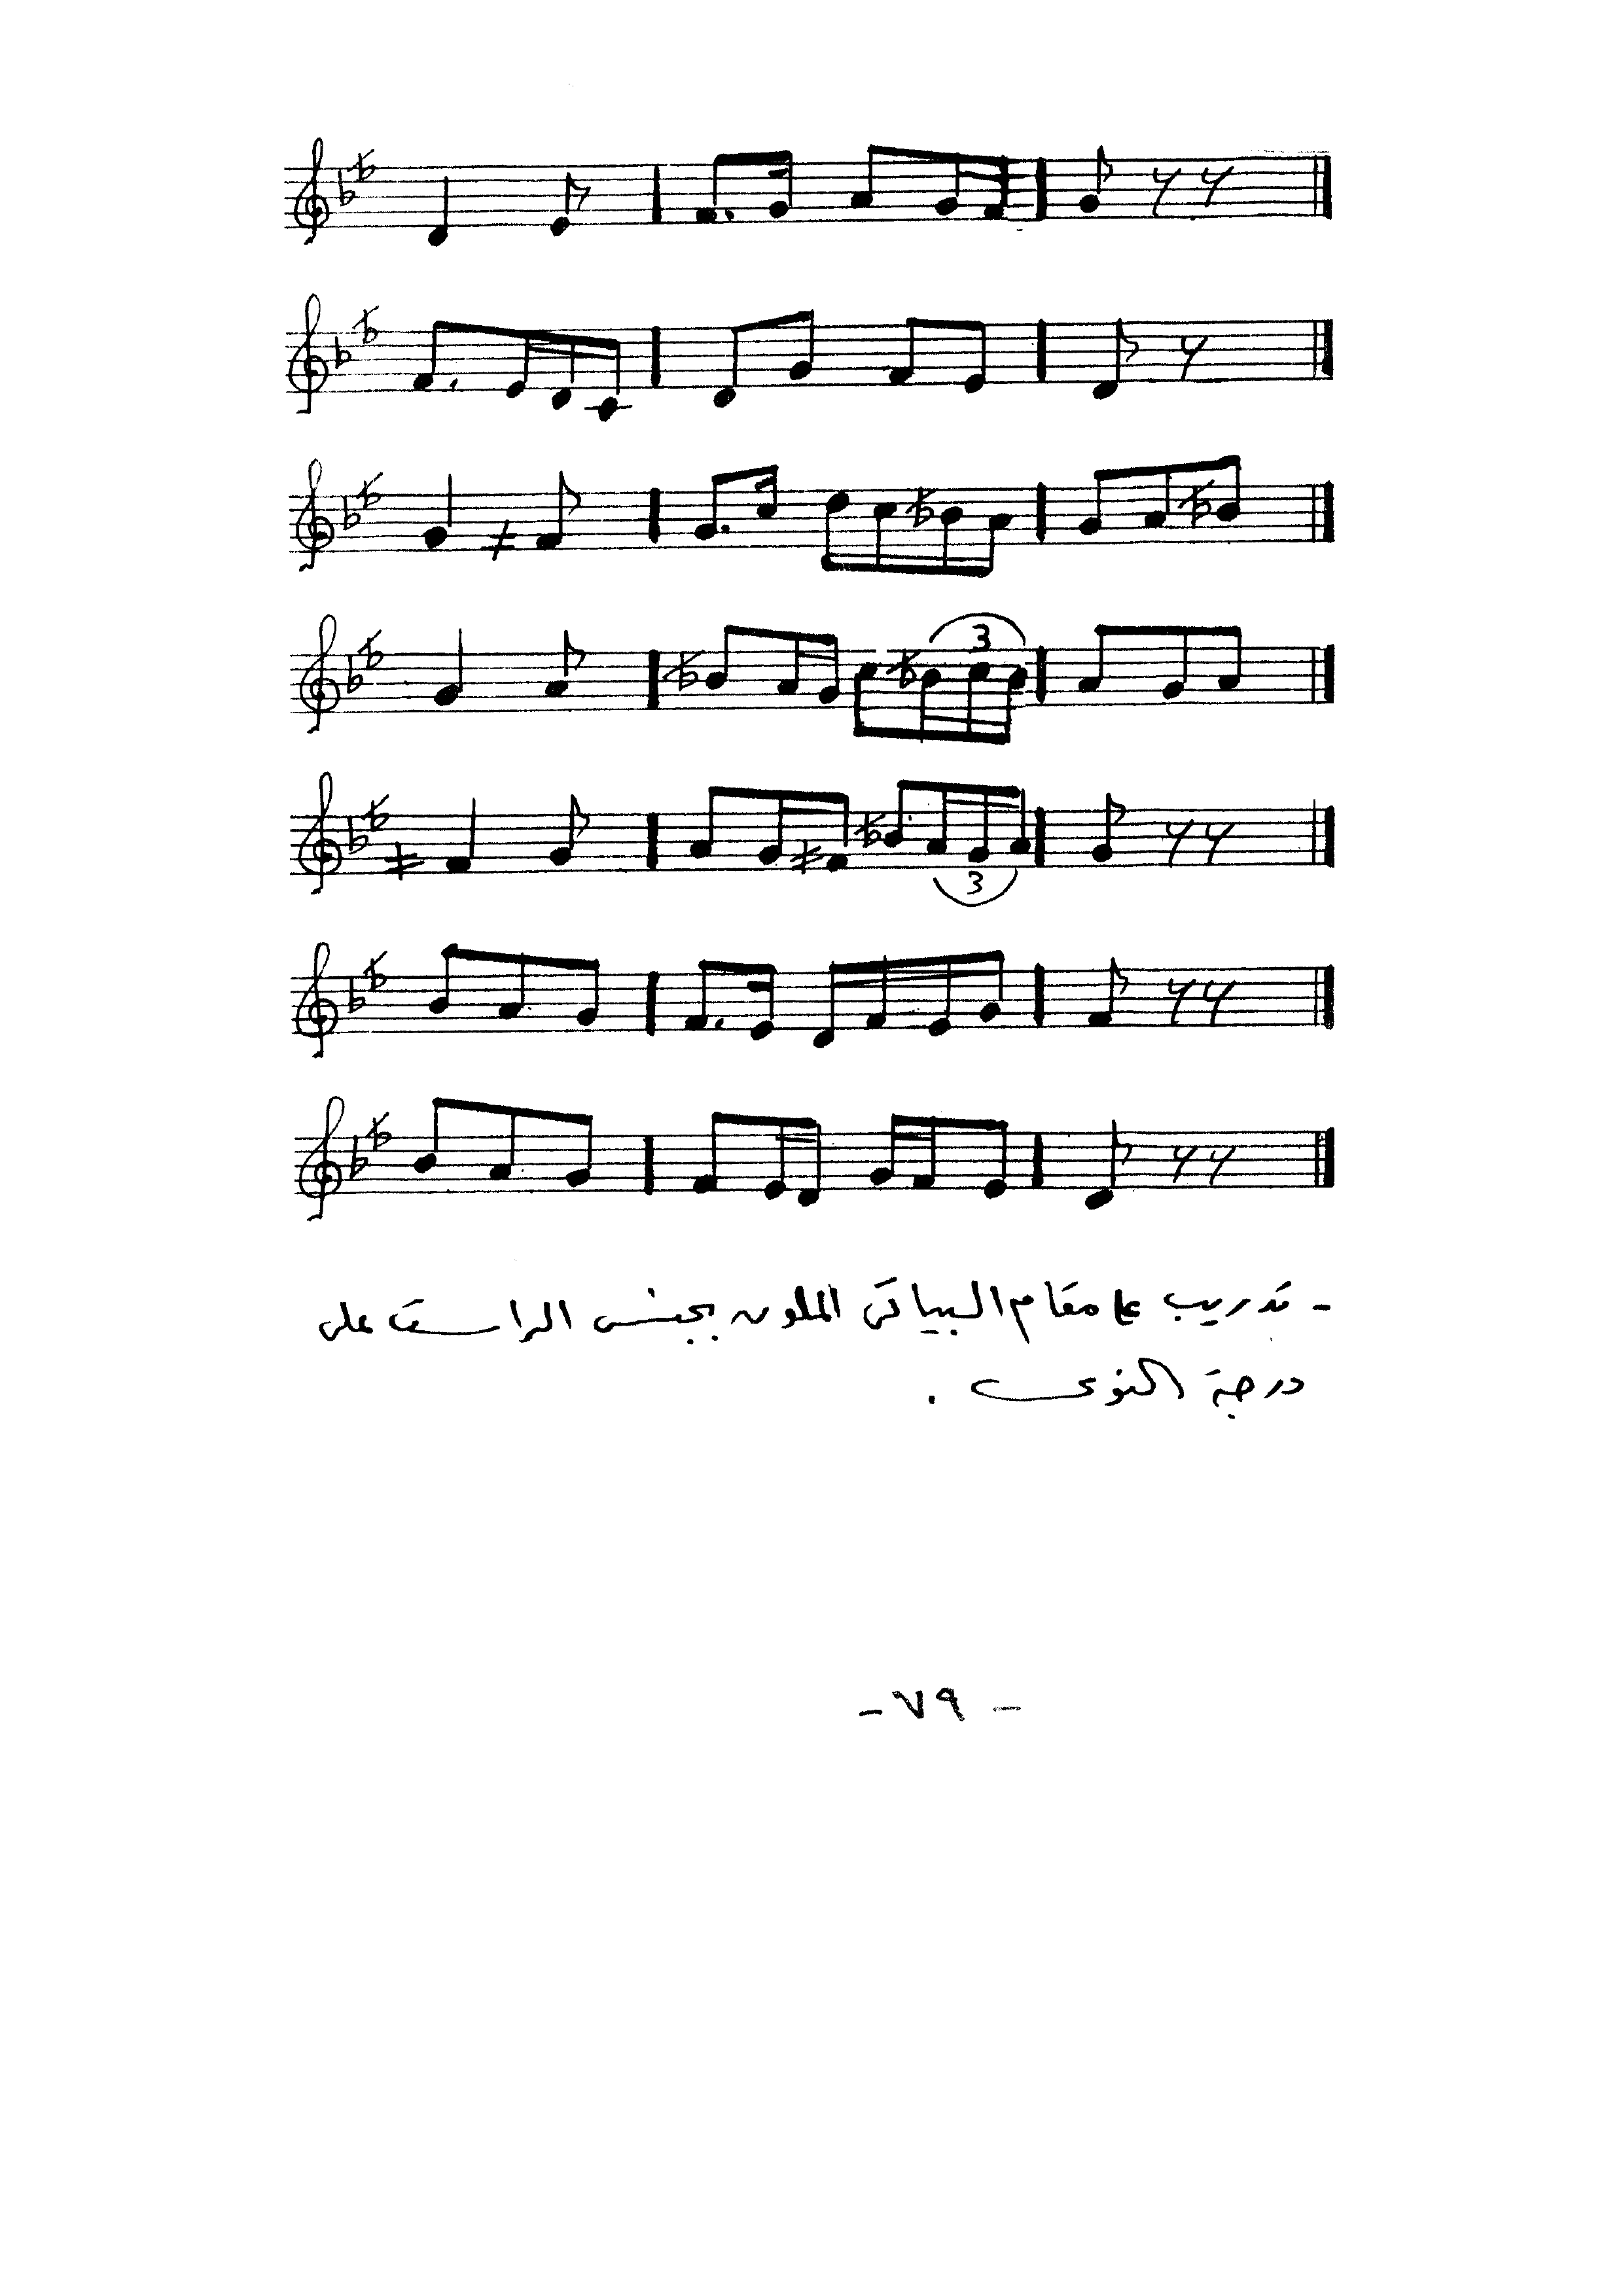 3
3
- تدريب على مقام البياتي الملون بجنس الراست على
درجة النوى .
- ٧٩ -